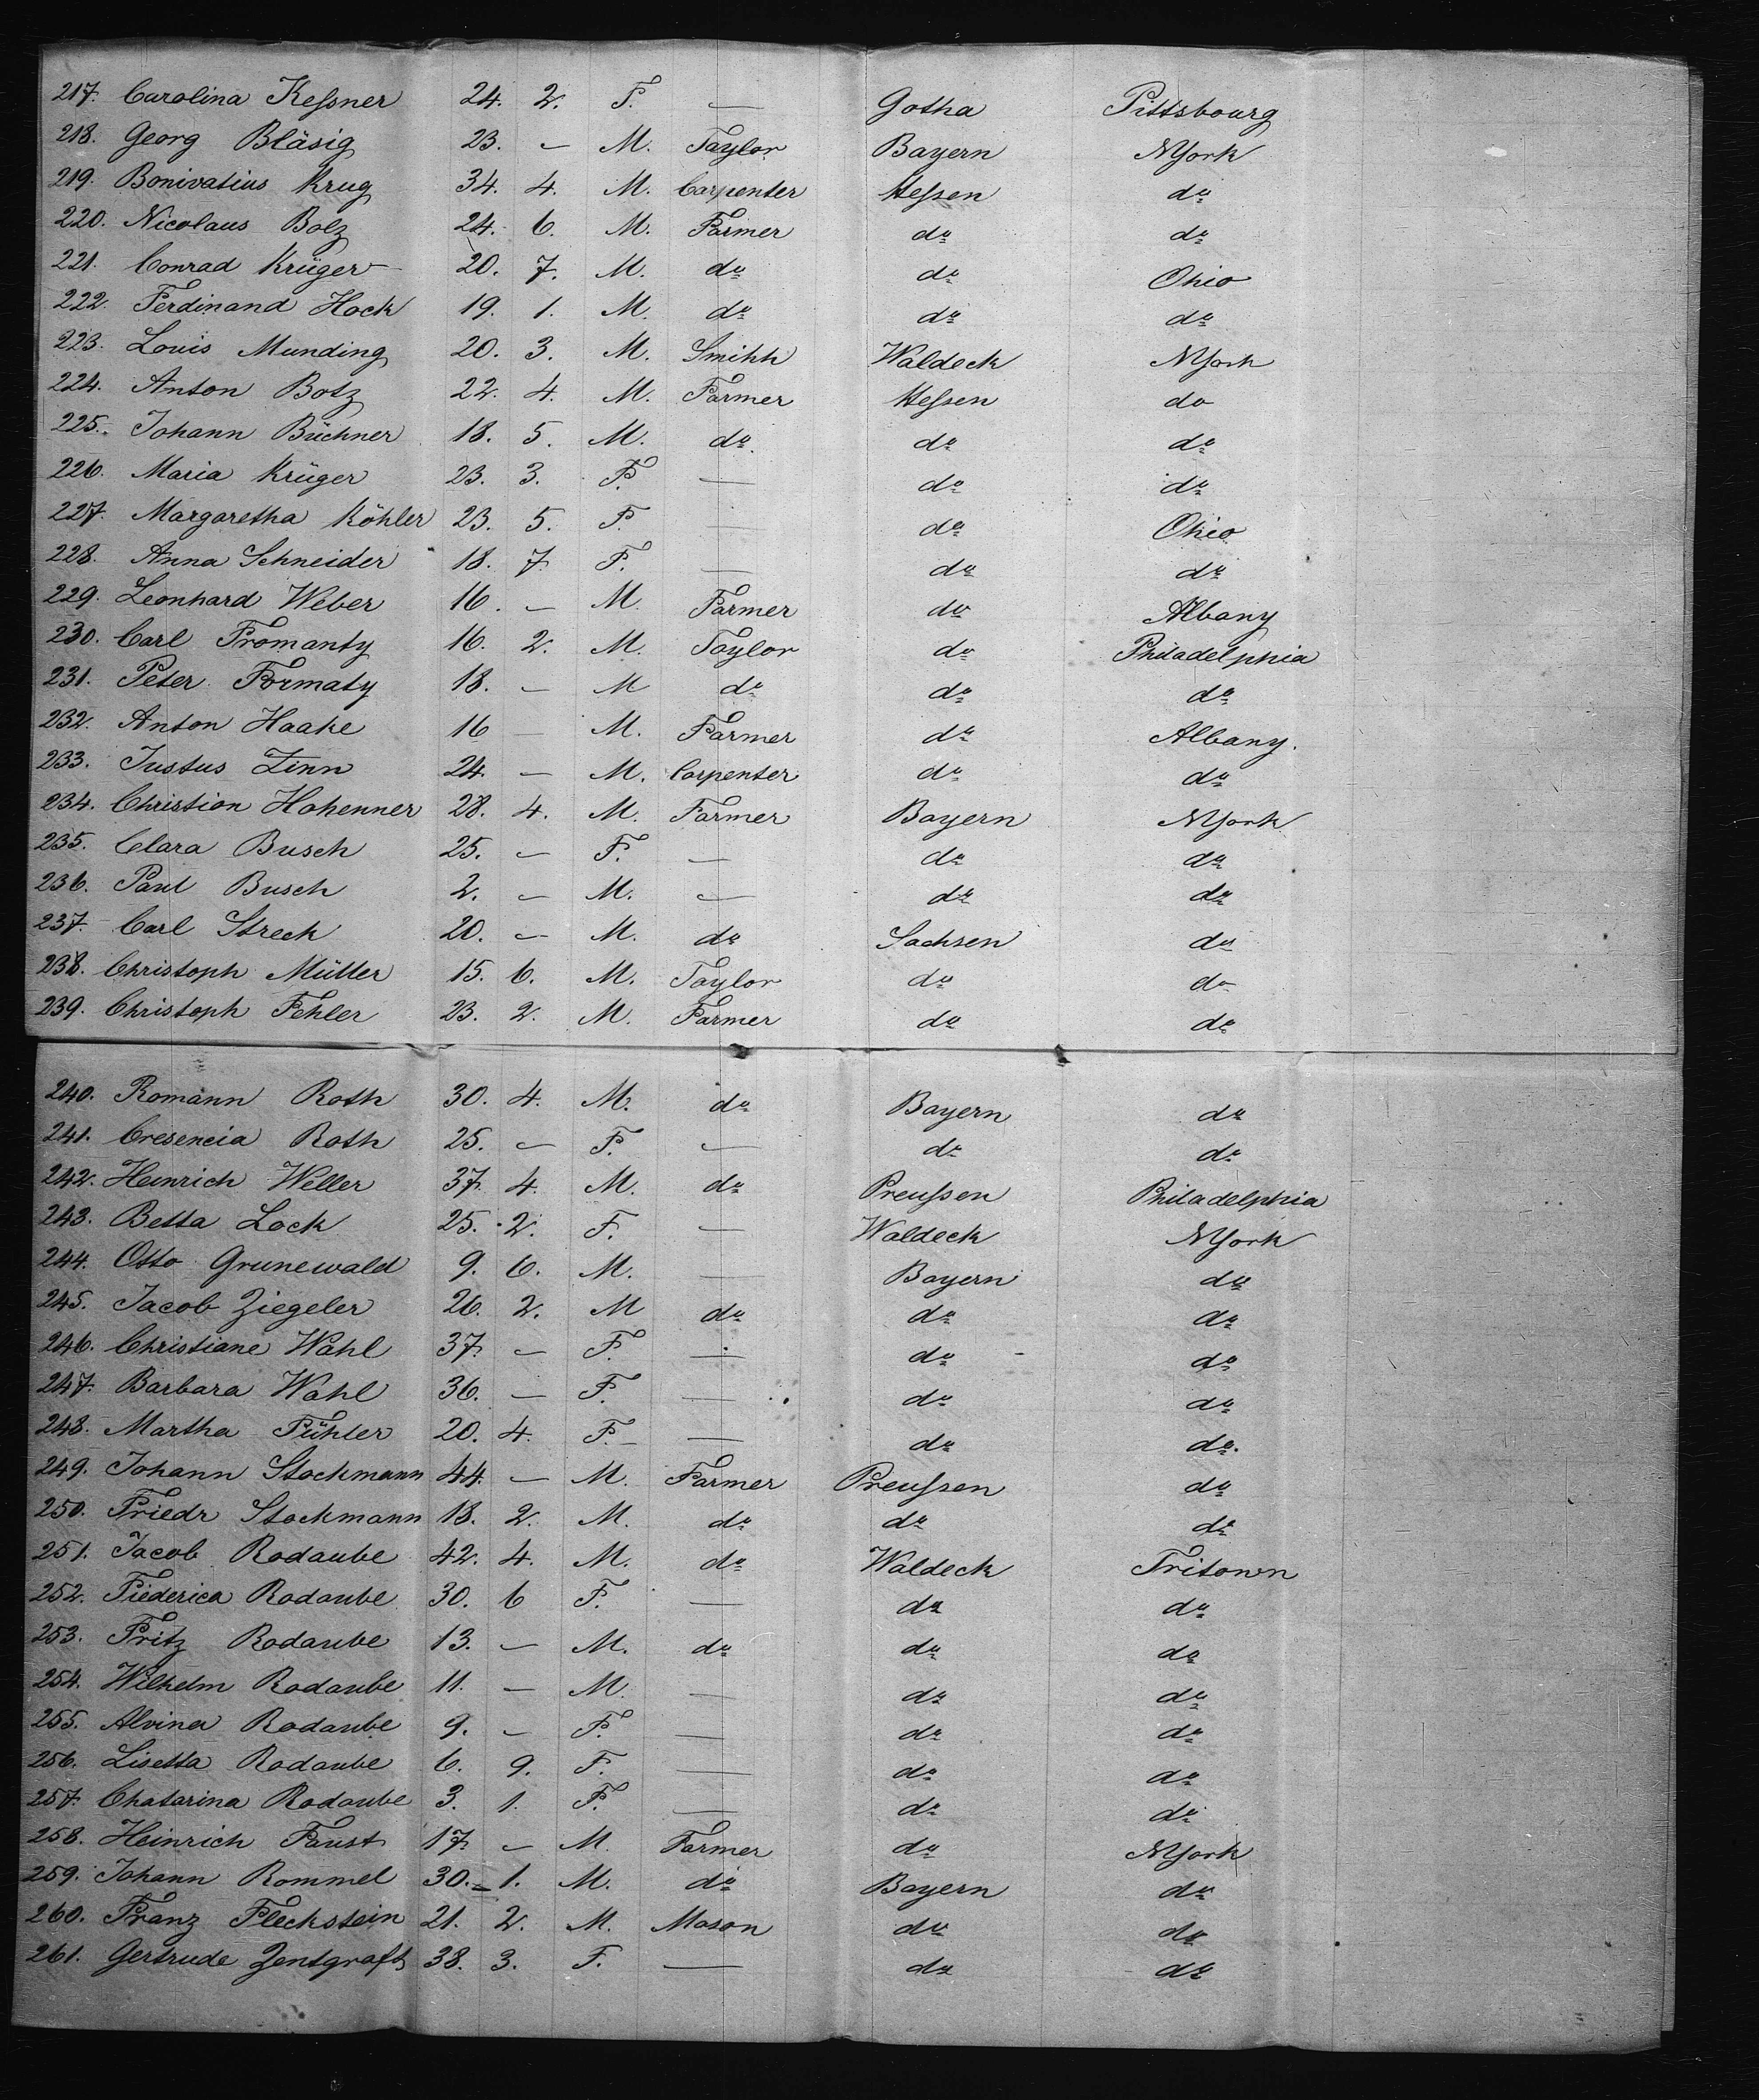 217. Carolina Keſsner 24. 2. F. — Gotha Pittsbourg
218. Georg Bläsig 23. — M. Taylor Bayern NYork
219. Bonivatius Krug 34. 4. M. Carpenter Heſsen do
220. Nicolaus Bolz 24. 6. M. Farmer do do
221. Conrad Krüger 20. 7. M. do do Ohio
222. Ferdinand Hock 19. 1. M. do do do
223. Louis Munding 20. 3. M. Smihh Waldeck NYork
224. Anton Botz 22. 4. M. Farmer Heſsen do
225. Johann Büchner 18. 5. M. do do do
226. Maria Krüger 23. 3. F. — do do
227. Margaretha Köhler 23. 5. F. — do Ohio
228. Anna Schneider 18. 7. F. — do do
229. Leonhard Weber 16. — M. Farmer do Albany
230. Carl Fromanty 16. 2. M. Taylor do Philadelphia
231. Peter Formaty 18. — M do do do
232. Anton Haake 16 — M. Farmer do Albany.
233. Justus Zinn 24. — M. Carpenter do do
234. Christian Hohenner 28. 4. M. Farmer Bayern NYork
235. Clara Busch 25. — F. — do do
236. Paul Busch 2. — M. — do do
237. Carl Streck 20. — M. do Sachsen do
238. Christoph Müller 15. 6. M. Taylor do do
239. Christoph Fehler 23. 2. M. Farmer do do
240. Romann Roth 30. 4. M. do Bayern do
241. Cresencia Roth 25. — F. — do do
242. Heinrich Weller 37. 4. M. do Preuſsen Philadelphia
243. Betta Lock 25. 2. F. — Waldeck NYork
244. Otto Grunewald 9. 6. M. — Bayern do
245. Jacob Ziegeler 26. 2. M do do do
246. Christiane Wahl 37. — F. — do do
247. Barbara Wahl 36. — F. — do do
248. Martha Fühler 20. 4. F. — do do.
249. Johann Stockmann 44. — M. Farmer Preuſsen do
250. Friedr Stockmann 18. 2. M. do do do
251. Jacob Rodaube 42. 4. M. do Waldeck Tritown
252. Fiederica Rodaube 30. 6 F. — do do
253. Fritz Rodaube 13. — M. do do do
254. Wilhelm Rodaube 11. — M. — do do
255. Alvina Rodaube 9. — F. — do do
256. Lisetta Rodaube 6. 9. F. — do do
257. Chatarina Rodaube 3. 1. F. — do do
258. Heinrich Faust 17. — M. Farmer do NYork
259. Johann Rommel 30. 1. M. do Bayern do
260. Franz Fleckstein 21. 2. M. Mason do do
261. Gertrude Zentgraft 38. 3. F. — do do